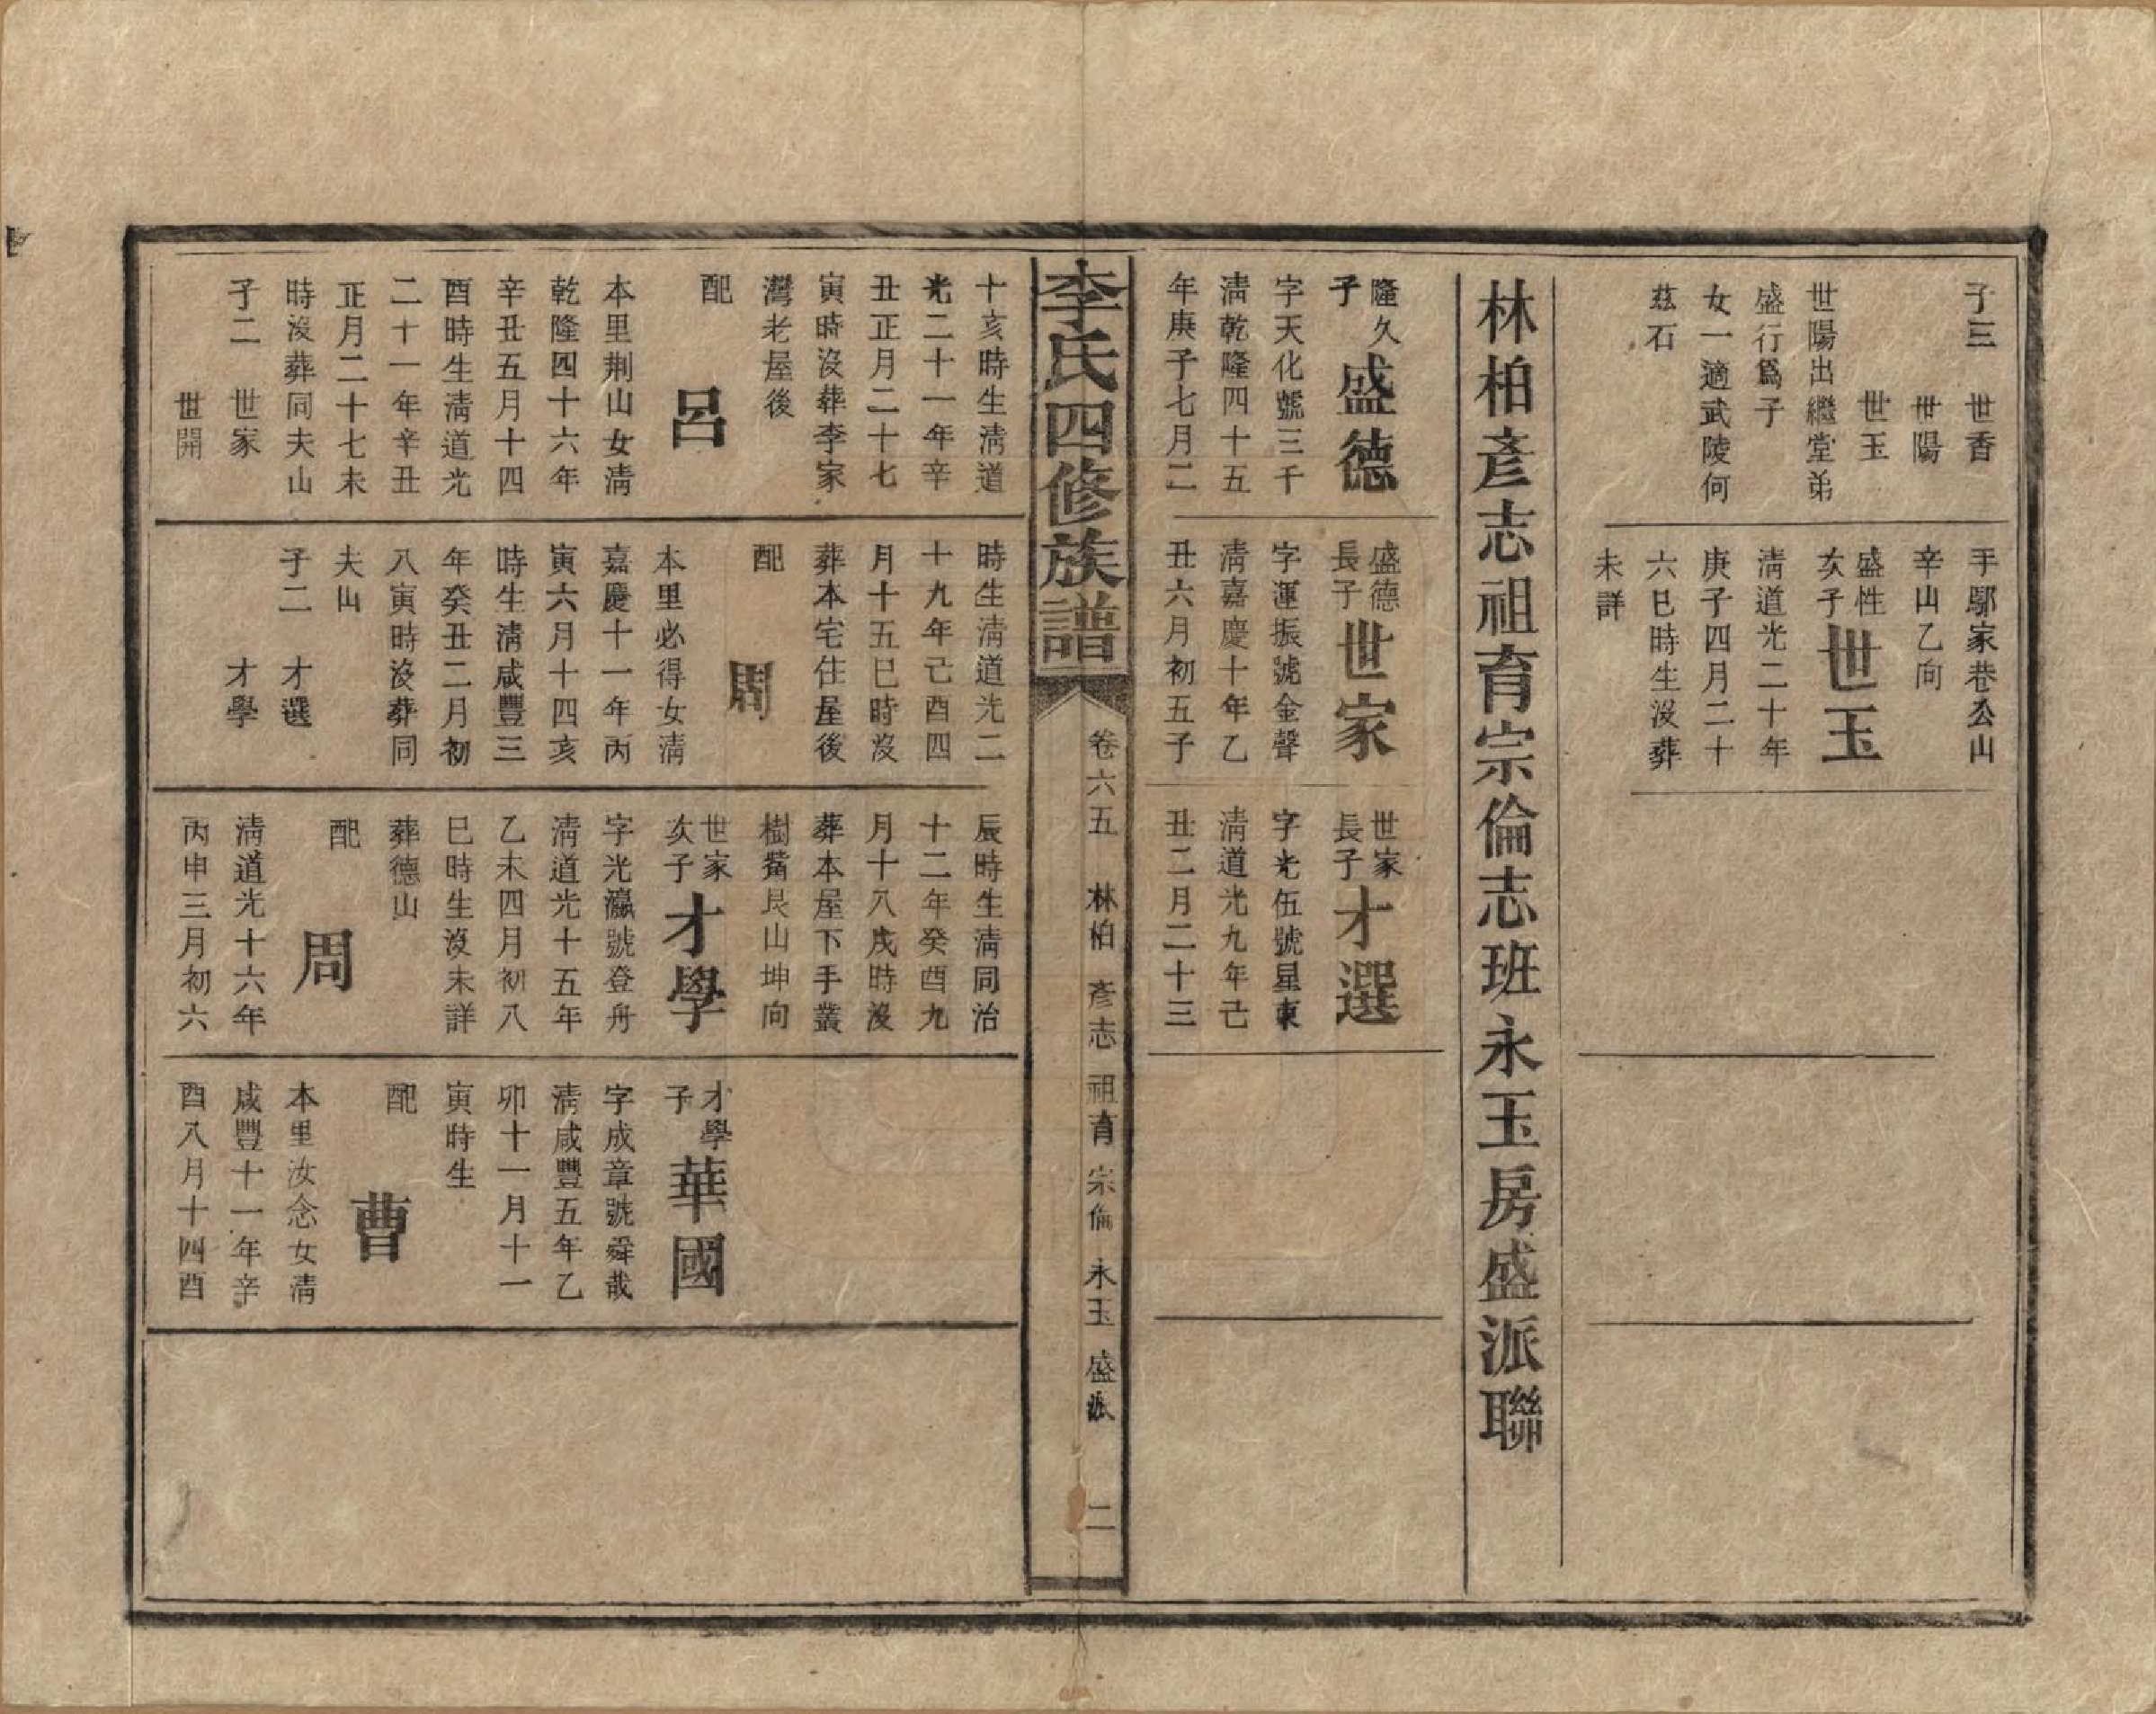 子三　世香
世陽
世玉
世陽出繼堂弟
盛行爲子
女一適武陵何
茲石
手鄢家巷公山
辛山乙向
盛性
次子世玉
淸道光二十年
庚子四月二十
六巳時生沒葬
未詳
林柏彥志祖育宗倫志班永玉房盛派聯
隆久
子盛德
字天化號三千
淸乾隆四十五
年庚子七月二
盛德
長子世家
字運振號金聲
淸嘉慶十年乙
丑六月初五子
世家
長子才選
字光伍號星東
淸道光九年己
丑二月二十三
李氏四修族譜
卷六五　林柏　彥志　祖育　宗倫　永玉　盛派　二
十亥時生淸道
光二十一年辛
丑正月二十七
寅時沒葬李家
灣老屋後
配　呂
本里荆山女淸
乾隆四十六年
辛丑五月十四
酉時生淸道光
二十一年辛丑
正月二十七未
時沒葬同夫山
子二　世家
世開
時生淸道光二
十九年己酉四
月十五巳時沒
葬本宅住屋後
配　周
本里必得女淸
嘉慶十一年丙
寅六月十四亥
時生淸咸豐三
年癸丑二月初
八寅時沒葬同
夫山
子二　才選
才學
辰時生淸同治
十二年癸酉九
月十八戌時沒
葬本屋下手叢
樹觜艮山坤向
世家
次子才學
字光瀛號登舟
淸道光十五年
乙未四月初八
巳時生沒未詳
葬德山
配　周
淸道光十六年
丙申三月初六
才學
子華國
字成章號舜哉
淸咸豐五年乙
卯十一月十一
寅時生
配　曹
本里汝念女淸
咸豐十一年辛
酉八月十四酉